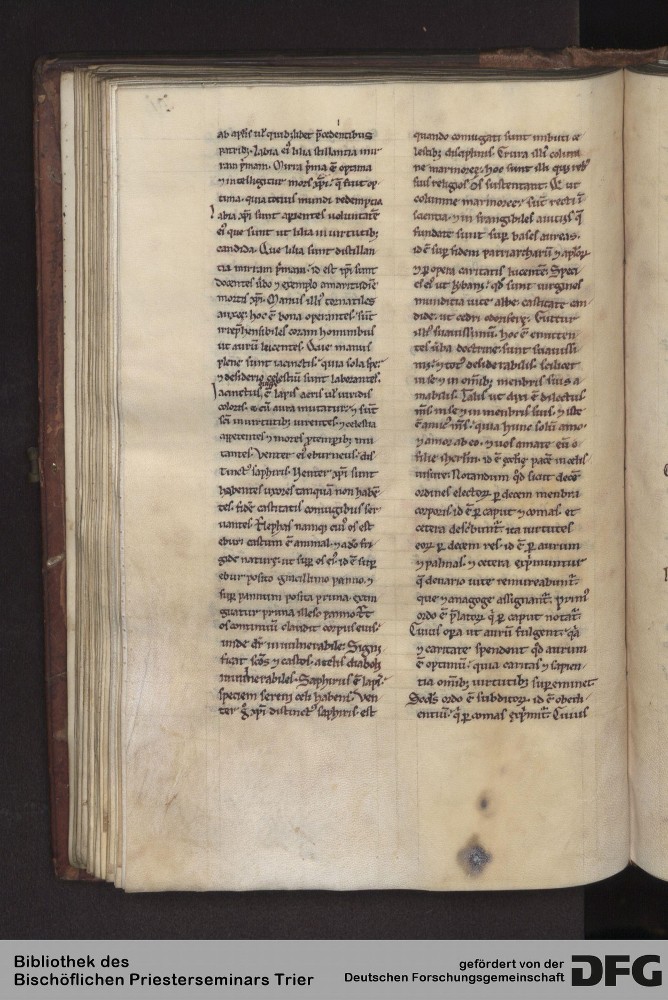 ab aplis ul' quidlibet p̄cedentibus
patrib;. Labia ei' lilia stillantia mir
ram p̄mam. Mirra p̄ma ē optima
⁊ intelligitur mors xp̄i. q̄ fuit op
tima. quia totius mundi redemptio
labia xp̄i sunt aperientes voluntatē
ei' que sunt ut lilia in uirtutib;
candida. Que lilia sunt distillan
tia mirram p̄mam. id est xp̄i sunt
docentes u̇bo ⁊ exemplo amaritudinē
mortis xp̄i. Manus illi' tornatiles
auree. hoc ē bona operantes. sūt
irrep̄hensibiles coram hominibus
ut aurū lucentes. Que manus
plene sunt iacinctis. quia sola spe
⁊ desiderio celestiū sunt laborantes.
Iacinctus ē lapis aeris ul' uiridis
coloris. ⁊ cū aura mutatur. ⁊ sūt
sc̄i in uirtutib; uirentes. ⁊ celestia
appetentes ⁊ mores
tantes. Venter ei' eburneus. dis
tinct' saphiris. Venter xp̄i sunt
habentes uxores tanquā non habē
tes. fidē castitatis coniugibus ser
uantes. Elephas namq; cui' os est
ebur castum ē animal. ⁊ adeo fri
gide nature. ut sup̄ os ei'. id ē sup̄
ebur posito panno. ⁊
sup̄ pannum posita pruna. extin
guatur pruna illeso panno. Et
os claudit corpus eius.
unde d̄r inuulnerabile. Signi
ficat sc̄os ⁊ castos. a telis diaboli
inuulnerabiles. Saphirus ē lapis
speciem sereni celi habens. Ven
ter g̊ xp̄i distinct' saphiris. est
quando coniugati sunt imbuti ce
lestib; disciplinis. Crura illi' colum
ne marmoree. hoc sunt illi qui
sui religiosi os sustentant. Qi ut
columne marmoree. sūt recti ī
iusticia. ⁊ infrangibiles a uiciis. q̄
fundate sunt sup̄ bases aureas.
id ē sup̄ fidem patriarcharū ⁊ ap̄lor̄
⁊ p̄ opera caritatis lucentē. Speci
es ei' ut lybani. qd̄ sunt uirgines
mundicia uite albe. castitate can
dide. ut cedri odorifere. Guttur
illi' suauissimū. hoc ē emitten
tes u̇ba doctrine. sunt suauissi
mi. ⁊ tot' desiderabilis. scilicet
in se ⁊ in om̄ib; membris suis a
mabilis. Talis ut dixi ē dilectus
m̄s in se ⁊ in membris suis. ⁊ iste
ē amic' m̄s. quia hunc solū amo
⁊ amor ab eo. ⁊ uos amate eū o
filie ihrl̄m. id ē pacē in celis
Notandum qd̄ sicut decē
ordines electorum p̄ decem menbra
corporis id ē p̄ caput ⁊ comas. et
cetera describunt̄. ita uirtutes
eorum p̄ decem res. id ē p̄ aurum
⁊ palmas. ⁊ cetera exp̄muntur
q̄ denario uite remunerabunt̄.
que ⁊ anagoge assignant̄. Prim'
ordo ē p̄lator̄ q̄ p̄ caput notat̄.
Cuius opa ut aurū fulgent. q̄a
⁊ caritate splendent qd̄ aurum
ē optimū. quia caritas ⁊ sapien
tia om̄ib; uirtutib; sup̄eminet.
Secd̄s ordo ē subditor̄. id ē obedi
entiū. q̄ p̄ comas exp̄mit̄. Cuius
Bibliothek des
Bischöflichen Priesterseminars Trier
gefördert von der
Deutschen Forschungsgemeinschaft
DFG